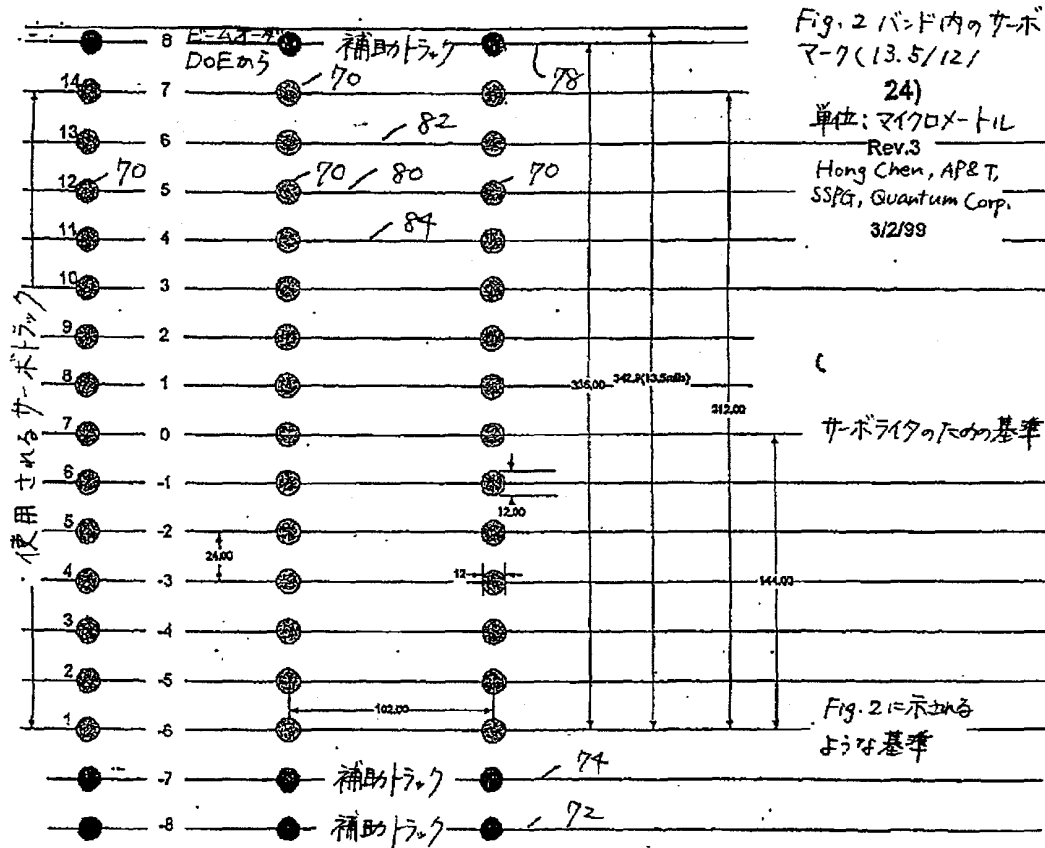 Fig. 2 バンド内のサーボ
マーク(13.5/12/
24)
単位:マイクロメートル
Rev.3
Hong Chen, AP&T,
SSPG, Quantum Corp.
3/2/99
8 ビームオーダ 補助トラック
DOEから
78
14 7 70
13 6 82
12 70 5 70 80 70
11 4 84
10 3
9 2
8 1
336.00 342.9(13.5mils)
312.00
7 0
サーボライタのための基準
6 -1
12.00
5 -2
24.00
4 -3 12
144.00
3 -4
2 -5
102.00
1 -6
Fig. 2に示される
ような基準
-7 補助トラック 74
-8 補助トラック 72
使用されるサーボトラック